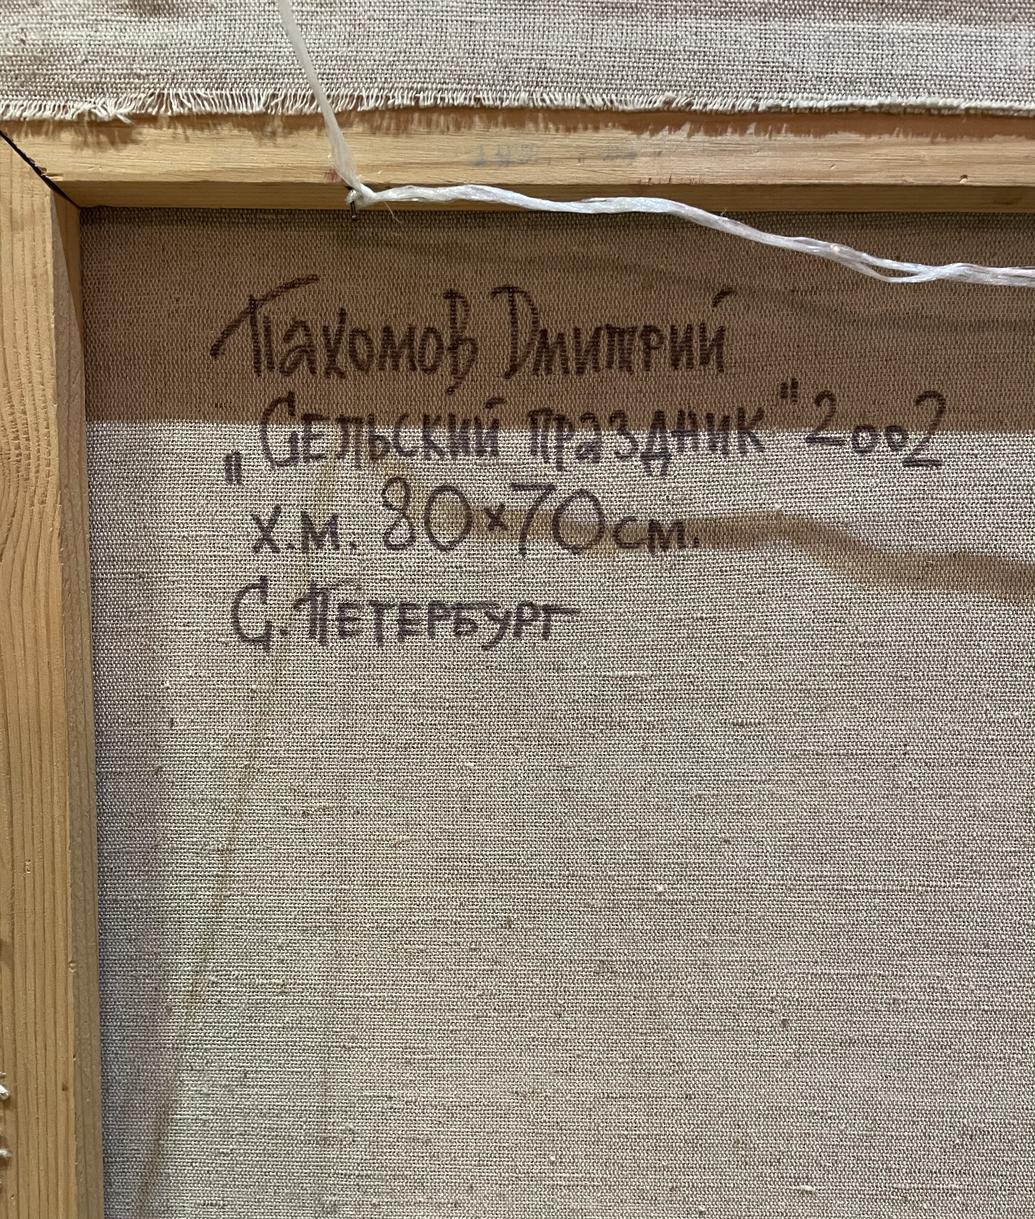 Пахомов Дмитрий
„Сельский праздник" 2002
х.м. 80×70см.
С. Петербург